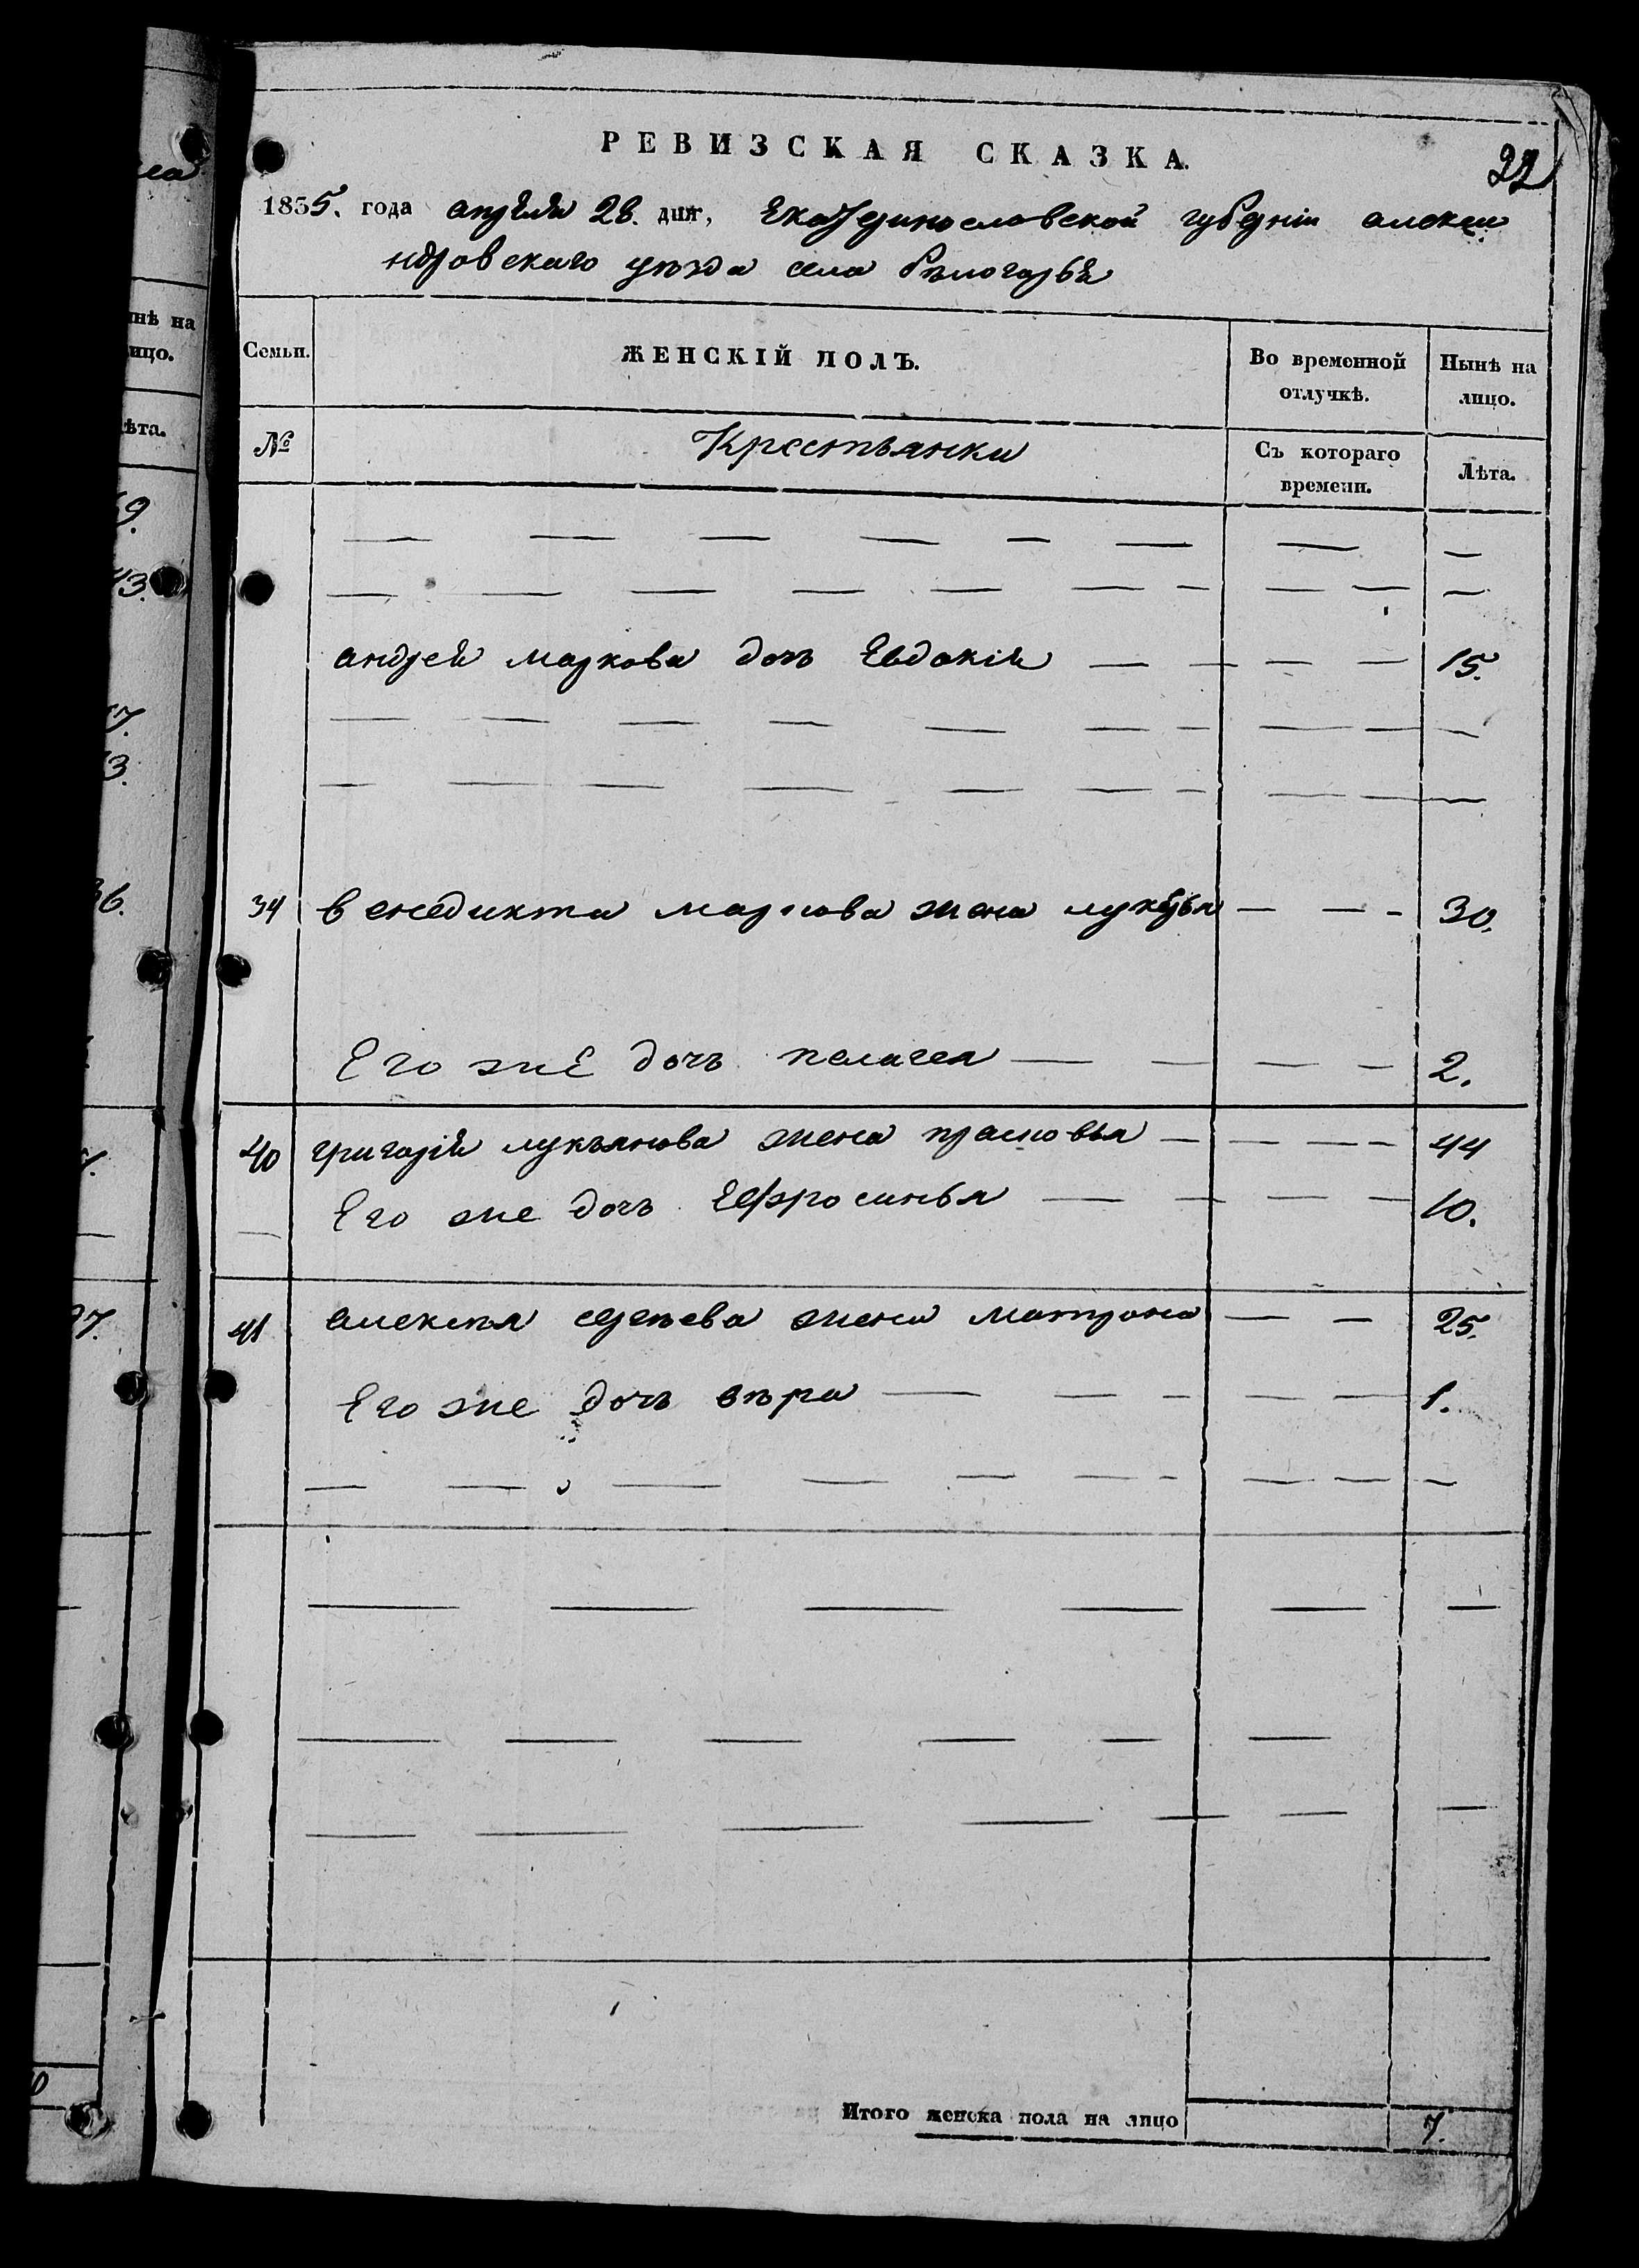 РЕВИЗСКАЯ СКАЗКА.
22
1835. года апрѣля 28. дня, Екатеринославской губерніи алекса
ндровскаго уѣзда села бѣлогорья
Семьи.
ЖЕНСКІЙ ПОЛЪ.
Во временной отлучкѣ.
Нынѣ на лицо.
№
Крестьянки
Съ котораго времени.
Лѣта.
андрея маркова дочь Евдокія 15.
34 венедикта маркова жена лукерья 30.
Его же дочь пелагея 2.
40 григорія лукьянова жена прасковья 44
Его же дочь Ефросинья 10.
41 алексѣя сергѣева жена матрона 25.
Его же дочь вѣра 1.
Итого женска пола на лицо 7.